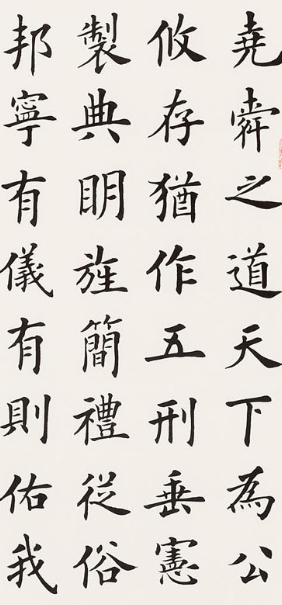 堯舜之道天下為公
攸存猶作五刑垂憲
製典眀旌簡禮從俗
邦寧有儀有則佑我